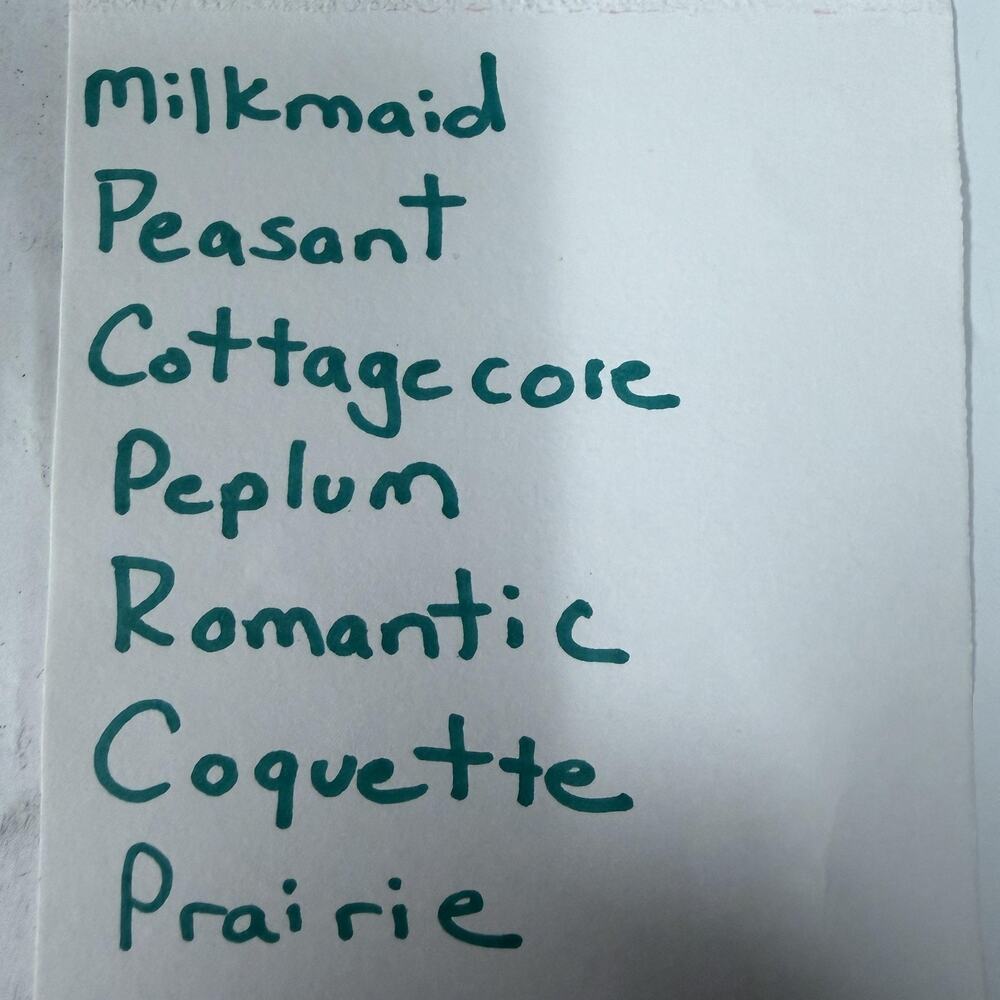 Milkmaid
Peasant
Cottagecore
Peplum
Romantic
Coquette
Prairie